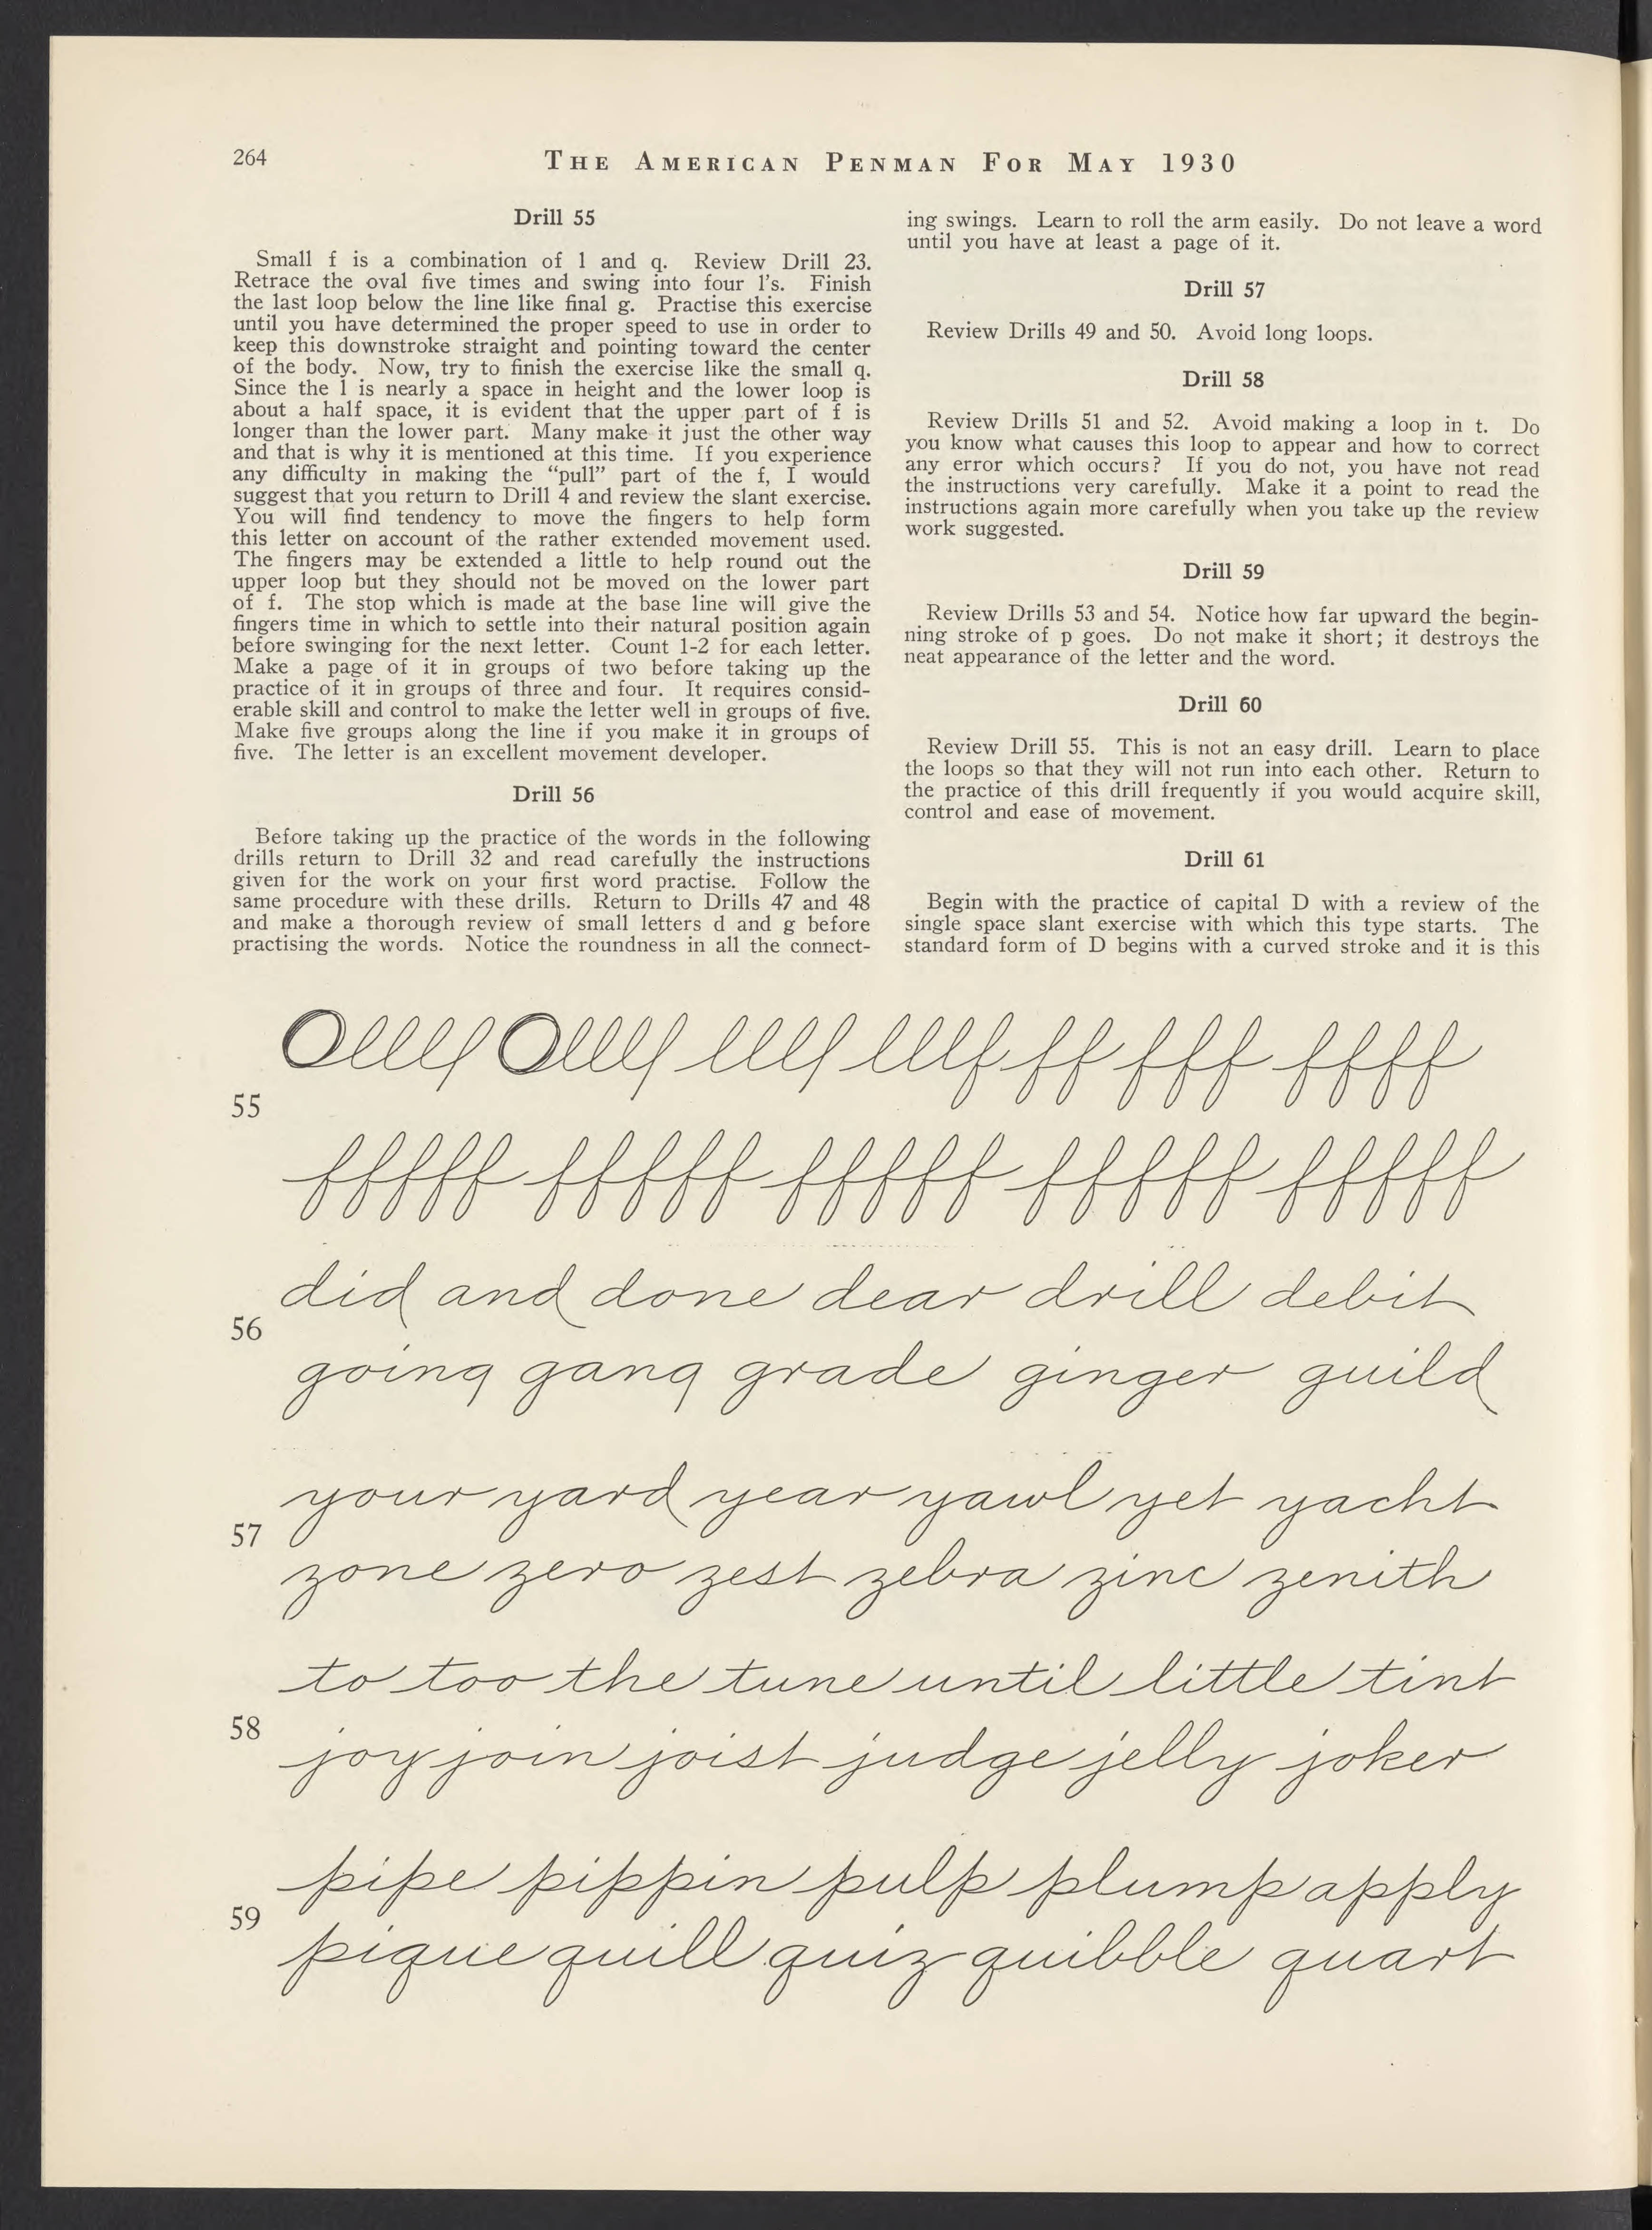 264
THE AMERICAN PENMAN FOR MAY 1930
Drill 55
Small f is a combination of l and q. Review Drill 23.
Retrace the oval five times and swing into four l's. Finish
the last loop below the line like final g. Practise this exercise
until you have determined the proper speed to use in order to
keep this downstroke straight and pointing toward the center
of the body. Now, try to finish the exercise like the small q.
Since the l is nearly a space in height and the lower loop is
about a half space, it is evident that the upper part of f is
longer than the lower part. Many make it just the other way
and that is why it is mentioned at this time. If you experience
any difficulty in making the “pull” part of the f, I would
suggest that you return to Drill 4 and review the slant exercise.
You will find tendency to move the fingers to help form
this letter on account of the rather extended movement used.
The fingers may be extended a little to help round out the
upper loop but they should not be moved on the lower part
of f. The stop which is made at the base line will give the
fingers time in which to settle into their natural position again
before swinging for the next letter. Count 1-2 for each letter.
Make a page of it in groups of two before taking up the
practice of it in groups of three and four. It requires consid-
erable skill and control to make the letter well in groups of five.
Make five groups along the line if you make it in groups of
five. The letter is an excellent movement developer.
Drill 56
Before taking up the practice of the words in the following
drills return to Drill 32 and read carefully the instructions
given for the work on your first word practise. Follow the
same procedure with these drills. Return to Drills 47 and 48
and make a thorough review of small letters d and g before
practising the words. Notice the roundness in all the connect-
ing swings. Learn to roll the arm easily. Do not leave a word
until you have at least a page of it.
Drill 57
Review Drills 49 and 50. Avoid long loops.
Drill 58
Review Drills 51 and 52. Avoid making a loop in t. Do
you know what causes this loop to appear and how to correct
any error which occurs? If you do not, you have not read
the instructions very carefully. Make it a point to read the
instructions again more carefully when you take up the review
work suggested.
Drill 59
Review Drills 53 and 54. Notice how far upward the begin-
ning stroke of p goes. Do not make it short; it destroys the
neat appearance of the letter and the word.
Drill 60
Review Drill 55. This is not an easy drill. Learn to place
the loops so that they will not run into each other. Return to
the practice of this drill frequently if you would acquire skill,
control and ease of movement.
Drill 61
Begin with the practice of capital D with a review of the
single space slant exercise with which this type starts. The
standard form of D begins with a curved stroke and it is this
55
Ollll Ollll llll llllf ff fff ffff
fffff fffff fffff fffff fffff
56
did and done dear drill debit
going gang grade ginger guild
57
your yard year yawl yet yacht
zone zero zest zebra zinc zenith
58
to too the tune until little tint
joy join joist judge jelly joker
59
pipe pippin pulp plump apply
pique quill quiz quibble quart